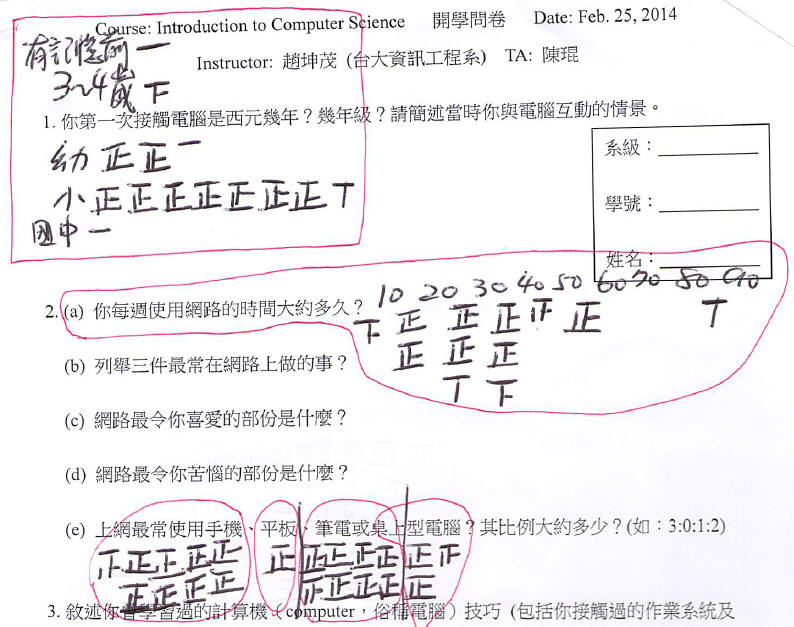 Course: Introduction to Computer Science 開學問卷 Date: Feb. 25, 2014
有記憶前 一
Instructor: 趙坤茂 (台大資訊工程系) TA: 陳琨
3~4歲 下
1. 你第一次接觸電腦是西元幾年？幾年級？請簡述當時你與電腦互動的情景。
幼 正 正 一
小 正 正 正 正 正 正 正 丅
國中 一
系級：
學號：
姓名：
10 20 30 40 50 60 70 80 90
2. (a) 你每週使用網路的時間大約多久？
下 正 正 正 正 正 丅
正 正 正
(b) 列舉三件最常在網路上做的事？
丅 下
(c) 網路最令你喜愛的部份是什麼？
(d) 網路最令你苦惱的部份是什麼？
(e) 上網最常使用手機、平板、筆電或桌上型電腦？其比例大約多少？(如：3:0:1:2)
正 正 正 正 正 正 正 正 正 正 正 正
正 正 正 正 正 正 正 正 正
3. 敘述你曾學習過的計算機（computer，俗稱電腦）技巧 (包括你接觸過的作業系統及